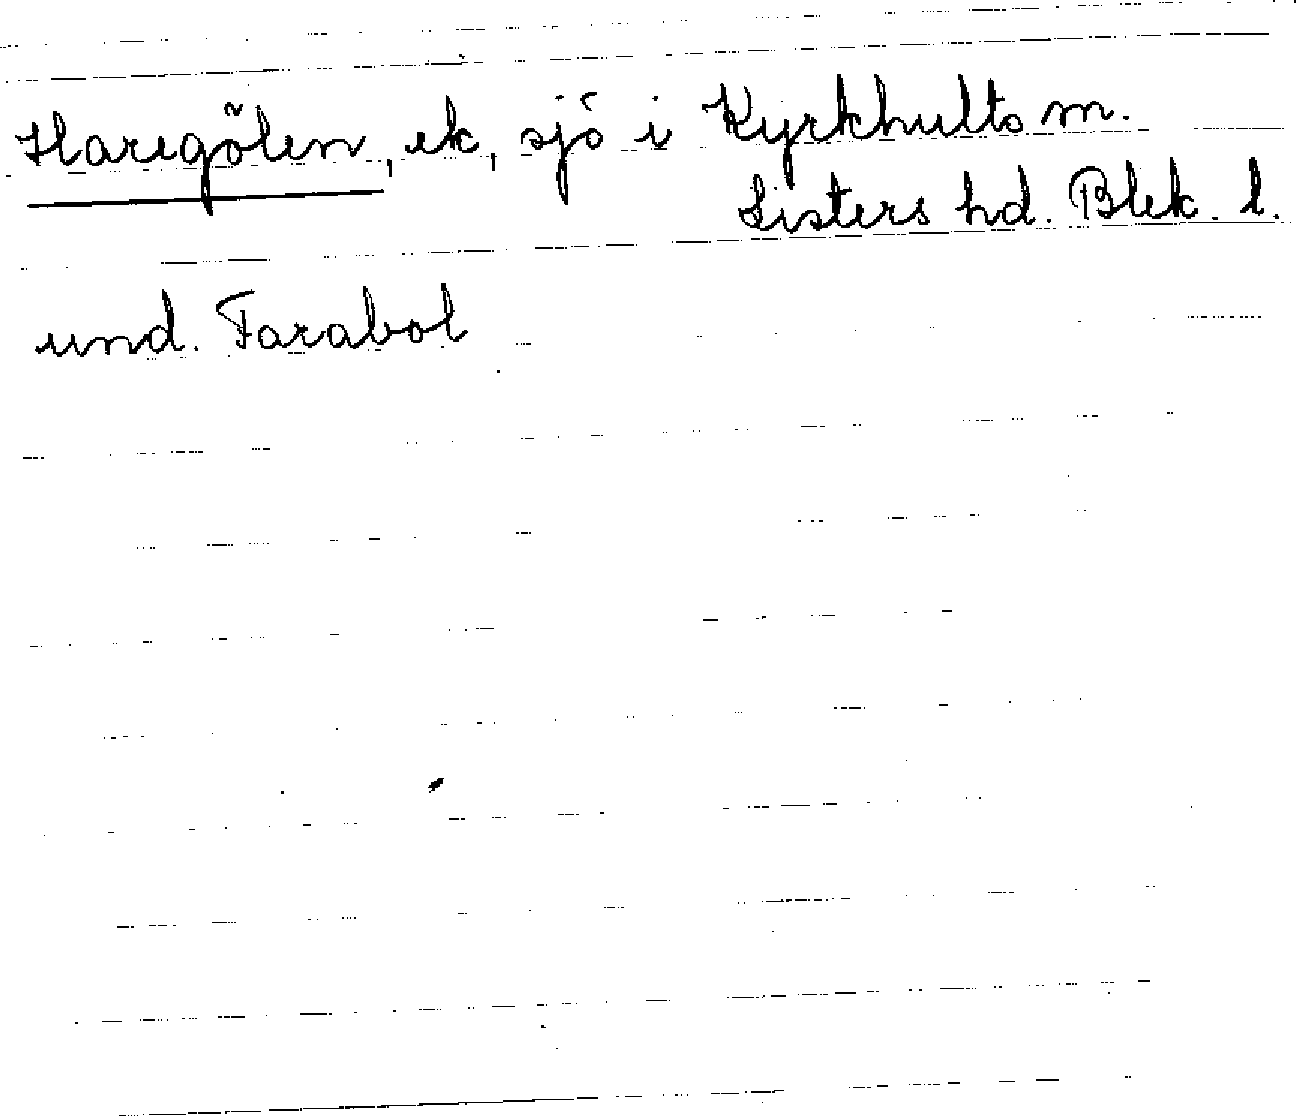 Haregölen, ek, sjö i Kyrkhults m.
Listers hd. Blek. l.
und. Farabol